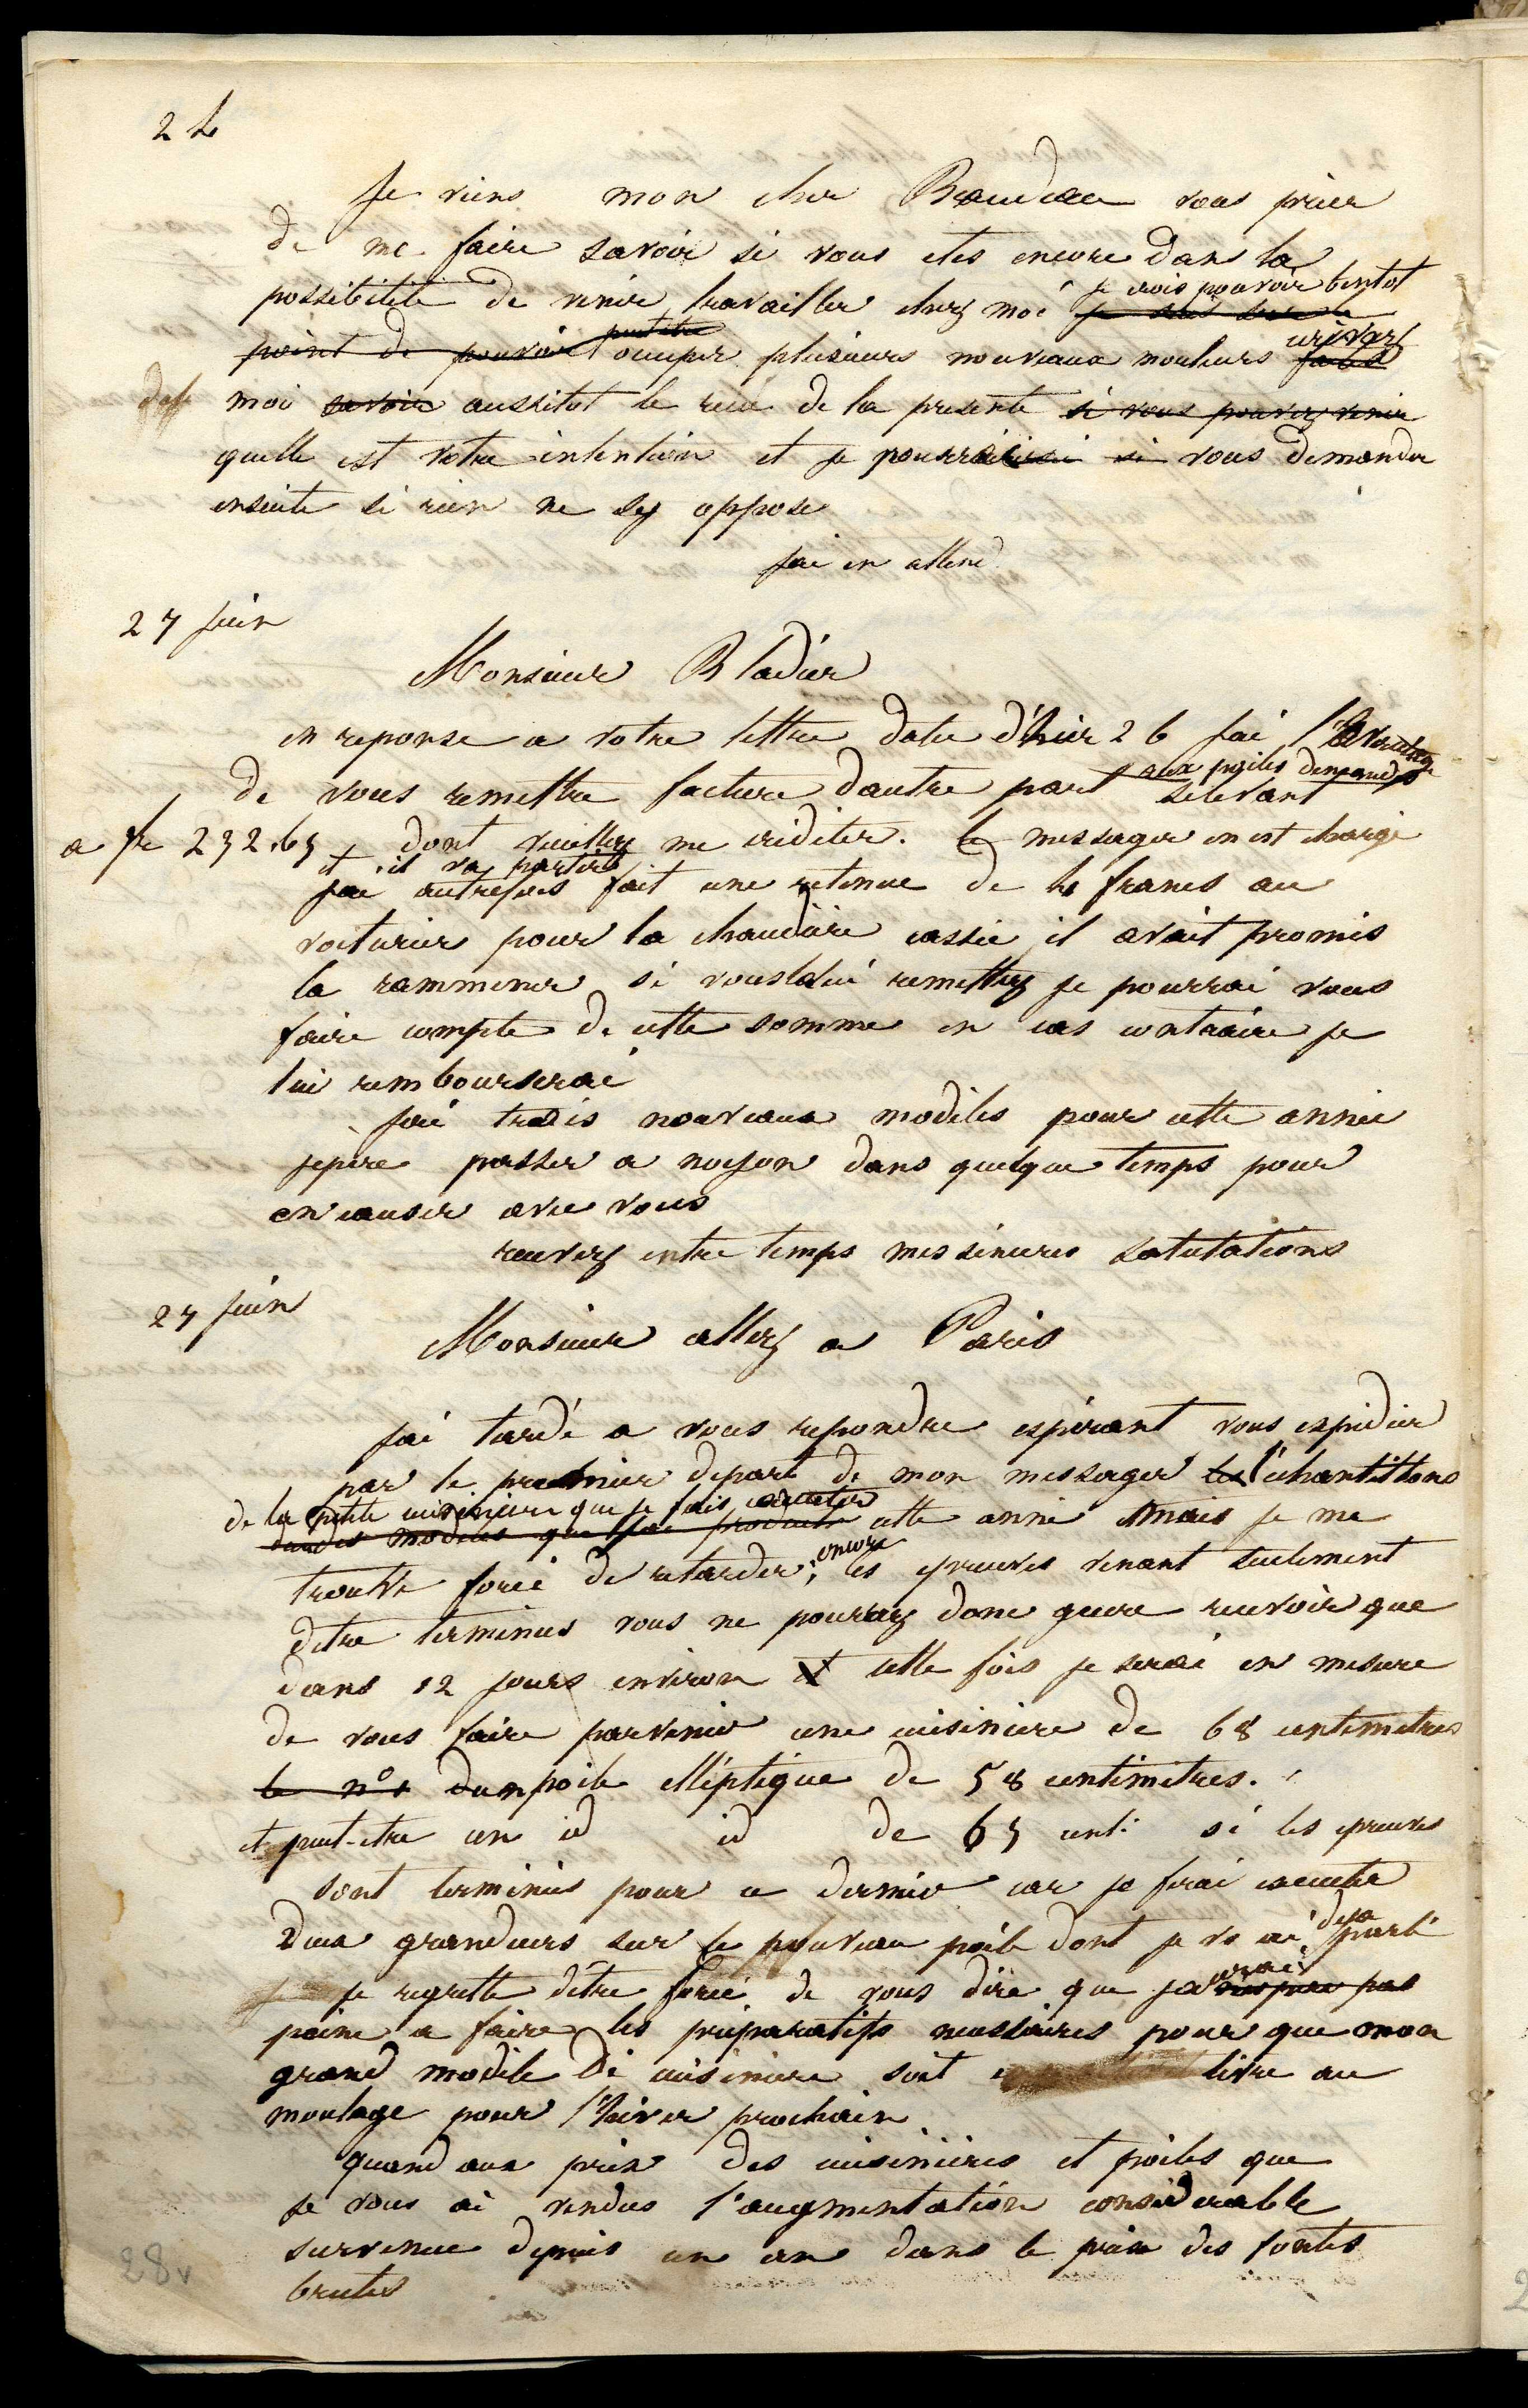 24
Je viens mon cher Beaudeau vous prier
de me faire savoir si vous etes encore dans la
possibilité de venir travailler chez moi je crois pouvoir bentot
je suis sur le
point de pouvoir occuper plusieurs nouveaux mouleurs ecrivez
moi savoir aussitot le recu de la presente si vous pouvez venir
quelle est votre intention et je pourrai si vous demander
ensuite si rien ne sy oppose
jai en attend
27 juin
Monsieur Bladier
en reponse a votre lettre datee d'hier 26 jai l'avantage
de vous remettre facture dautre part aux poiles demandés
selevant
a fr 232.65 dont veuillez me créditer. le messager en est chargé
et il va partir
jai autrefois fait une retenue de 4 francs au
voiturier pour la chaudière cassée il avait promis
la rammener si vous lui remettez je pourrai vous
faire compte de cette somme en cas contraire je
lui rembourserai
jai trois nouveaux modèles pour cette année
jepère passer a noyon dans quelque temps pour
en causer avec vous
recevez entre temps mes sincères salutations
27 juin
Monsieur allez a Paris
jai tardé a vous repondre espérant vous expédier
par le premier depart de mon messager les l'échantillons
de la petite cuisiniere que je fais executer
dundes modeles que jai produit cette anné mais je me
trouve forcé de retarder encore, les epreuves venant seulement
detre terminées vous ne pourrez donc guere recevoir que
dans 12 jours environ et cette fois je serai en mesure
de vous faire parvenir une cuisiniere de 68 centimetres
le n° 1 dun poile elléptique de 58 centimètres.
et peut-etre un id id de 65 cent: si les epreuves
sont terminées pour ce dernier car je ferai executer
deux grandeurs sur le nouveau poële dont je vs ai deja parlé
je regrette d'être forcé de vous dire que jaurai
peine a faire les préparatifs necessaires pour que mon
grand modèle de cuisiniere soit livré au
moulage pour l'hiver prochain
quand aux prix des cuisinières et poiles que
je vous ai vendus l'augmentation considerable
survenue depuis un an dans le prix des fontes
brutes
28v